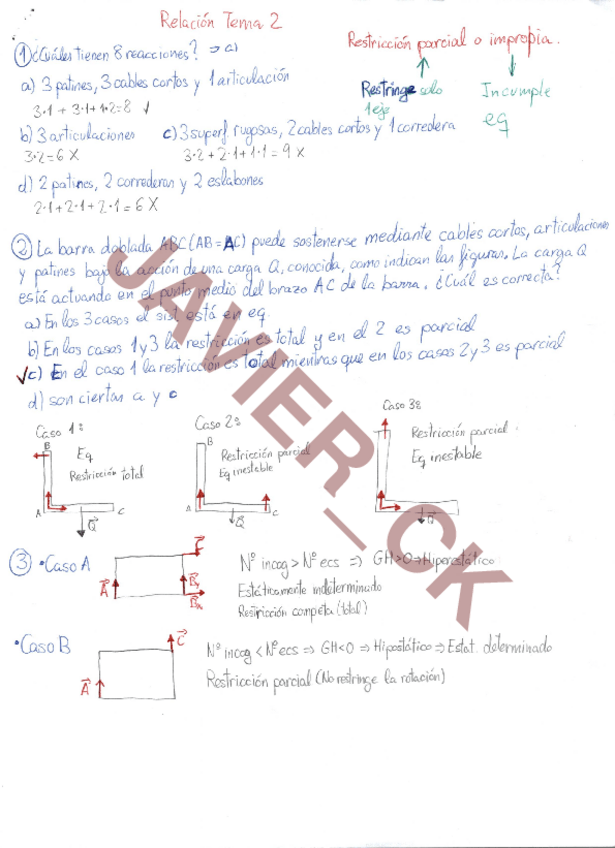 Relación Tema 2
Restricción parcial o impropia.
① ¿Cuáles tienen 8 reacciones? ⇒ a)
a) 3 patines, 3 cables cortos y 1 articulación
3·1 + 3·1 + 1·2 = 8 ✓
Restringe solo
1 eje
Incumple
eq
b) 3 articulaciones c) 3 superf rugosas, 2 cables cortos y 1 corredera
3·2 = 6 X 3·2 + 2·1 + 1·1 = 9 X
d) 2 patines, 2 correderas y 2 eslabones
2·1 + 2·1 + 2·1 = 6 X
② La barra doblada ABC (AB = AC) puede sostenerse mediante cables cortos, articulaciones
y patines bajo la acción de una carga Q, conocida, como indican las figuras. La carga Q
está actuando en el punto medio del brazo AC de la barra. ¿Cuál es correcta?
a) En los 3 casos el sist está en eq.
b) En los casos 1 y 3 la restricción es total y en el 2 es parcial
✓c) En el caso 1 la restricción es total mientras que en los casos 2 y 3 es parcial
d) son ciertas a y c
Caso 1:
B
Eq
Restricción total
A
C
Q
Caso 2:
B
Restricción parcial
Eq inestable
A
C
Q
Caso 3:
Restricción parcial
Eq inestable
Q
③ • Caso A
A
By
Bx
Nº incog > Nº ecs ⇒ GH>0 ⇒ Hiperestático
Estáticamente indeterminado
Restricción completa (total)
• Caso B
A
C
Nº incog < Nº ecs ⇒ GH<0 ⇒ Hipostático ⇒ Estat. determinado
Restricción parcial (No restringe la rotación)
JAVIER_CK